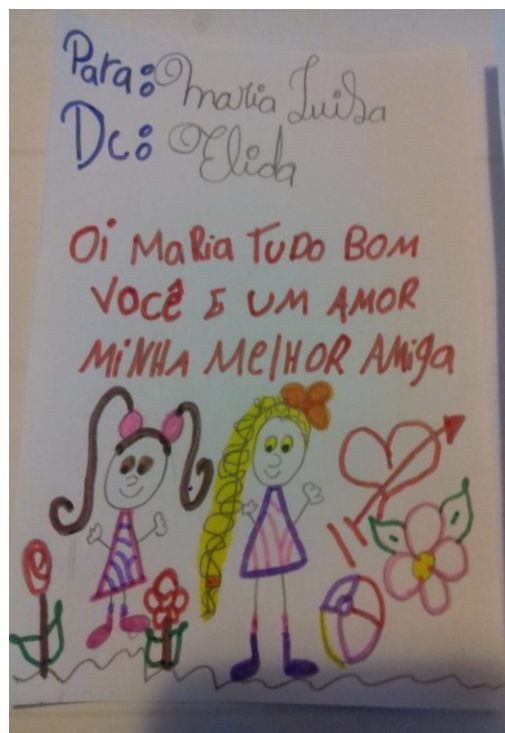 Para: Maria Luisa
De: Elida
Oi Maria TUDO BOM
VOCÊ E UM AMOR
MINHA MElHOR AMiga